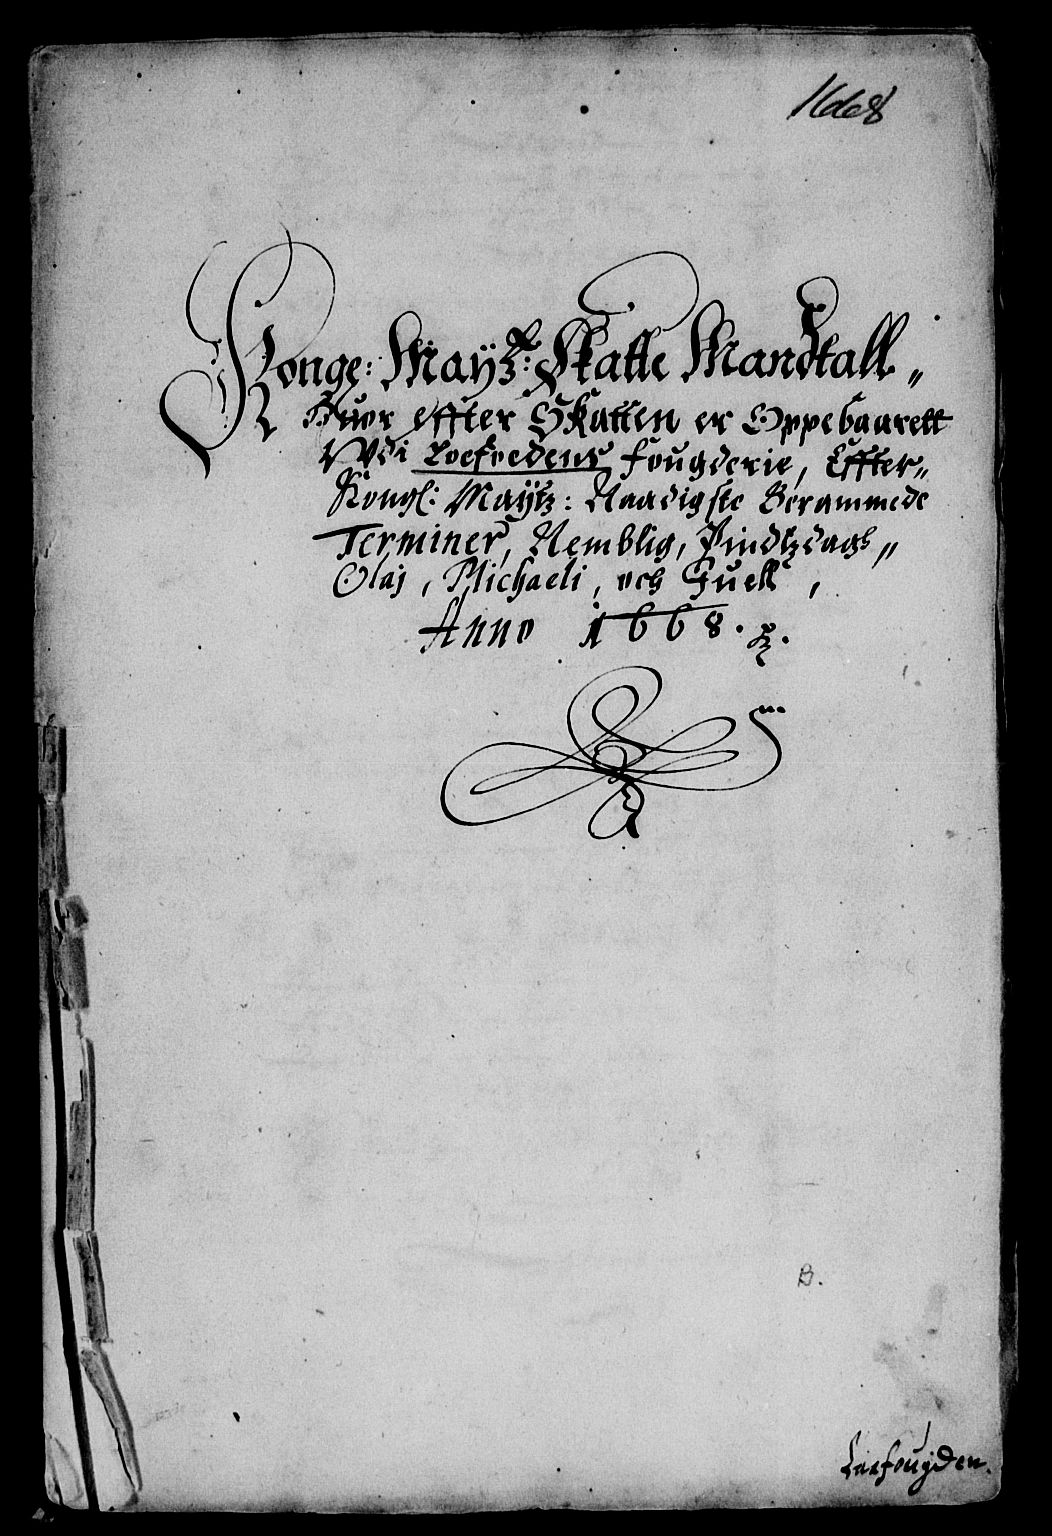 1668
Konge: Maÿtz: Skatte Mandtall„
Huor effter Skatten er Oppebaarett
Vdi Loefoedens Fougderie, Effter„
Kongl: Maÿtz: Naadigste Berammede
Terminer, Nemblig, Pindtzdags„
Olaj, Michaeli, och Juell,
Anno 1668.
B.